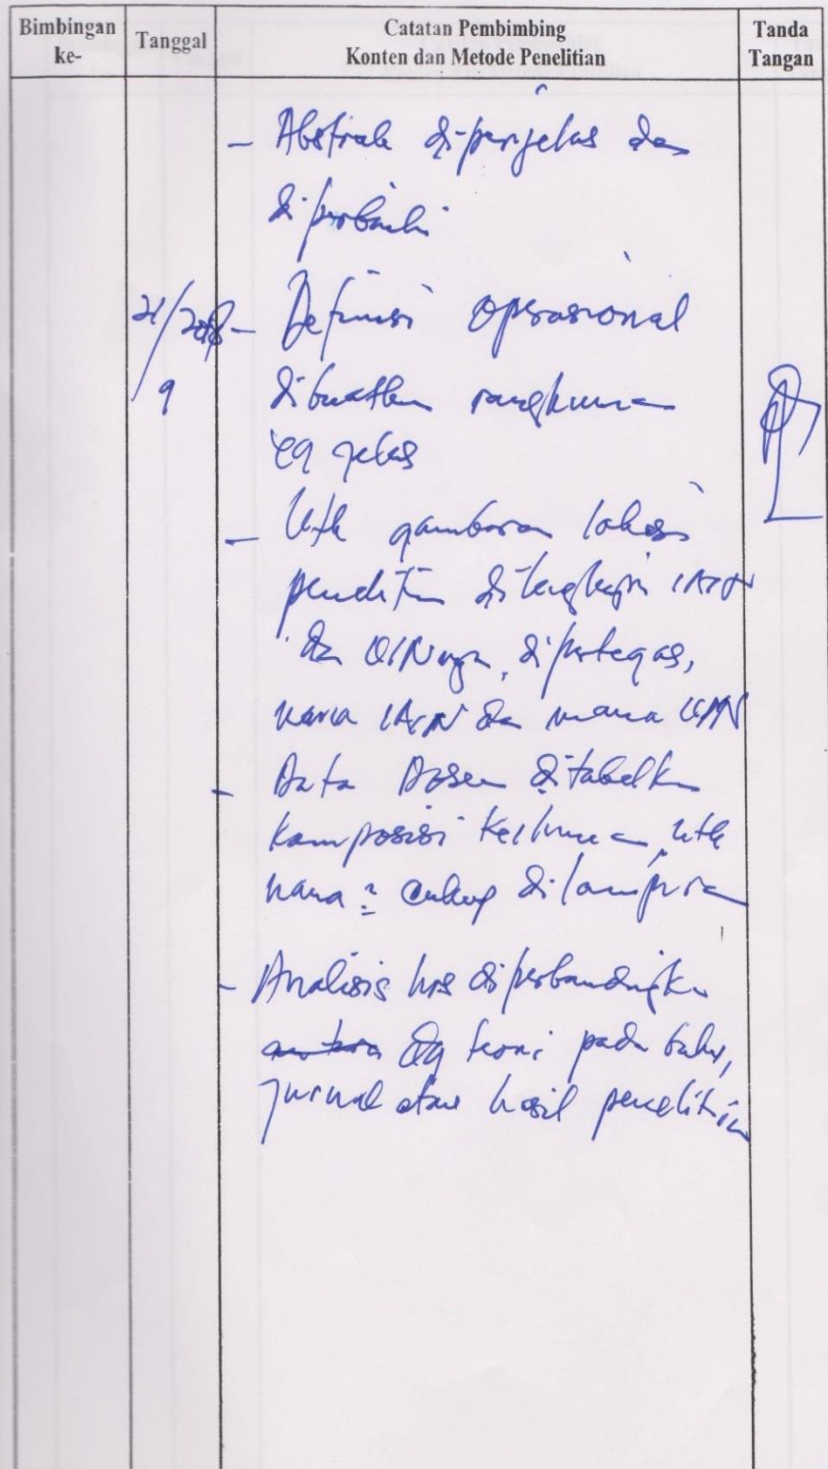 Bimbingan ke-
Tanggal
Catatan Pembimbing
Konten dan Metode Penelitian
Tanda Tangan
- Abstrak diperjelas dan
diperbaiki
21/2018
9
- Definisi operasional
dibuatkan rangkuman
yg jelas
- Utk gambaran lokasi
penelitian dilengkapi IAIN
dan UINnya, dipertegas,
mana IAIN dan mana UIN
- Data Dosen ditabelkan
komposisi keilmuan, utk
nama2 cukup dilampiran
- Analisis hrs diperbandingkan
antara dg teori pada buku,
jurnal atau hasil penelitian